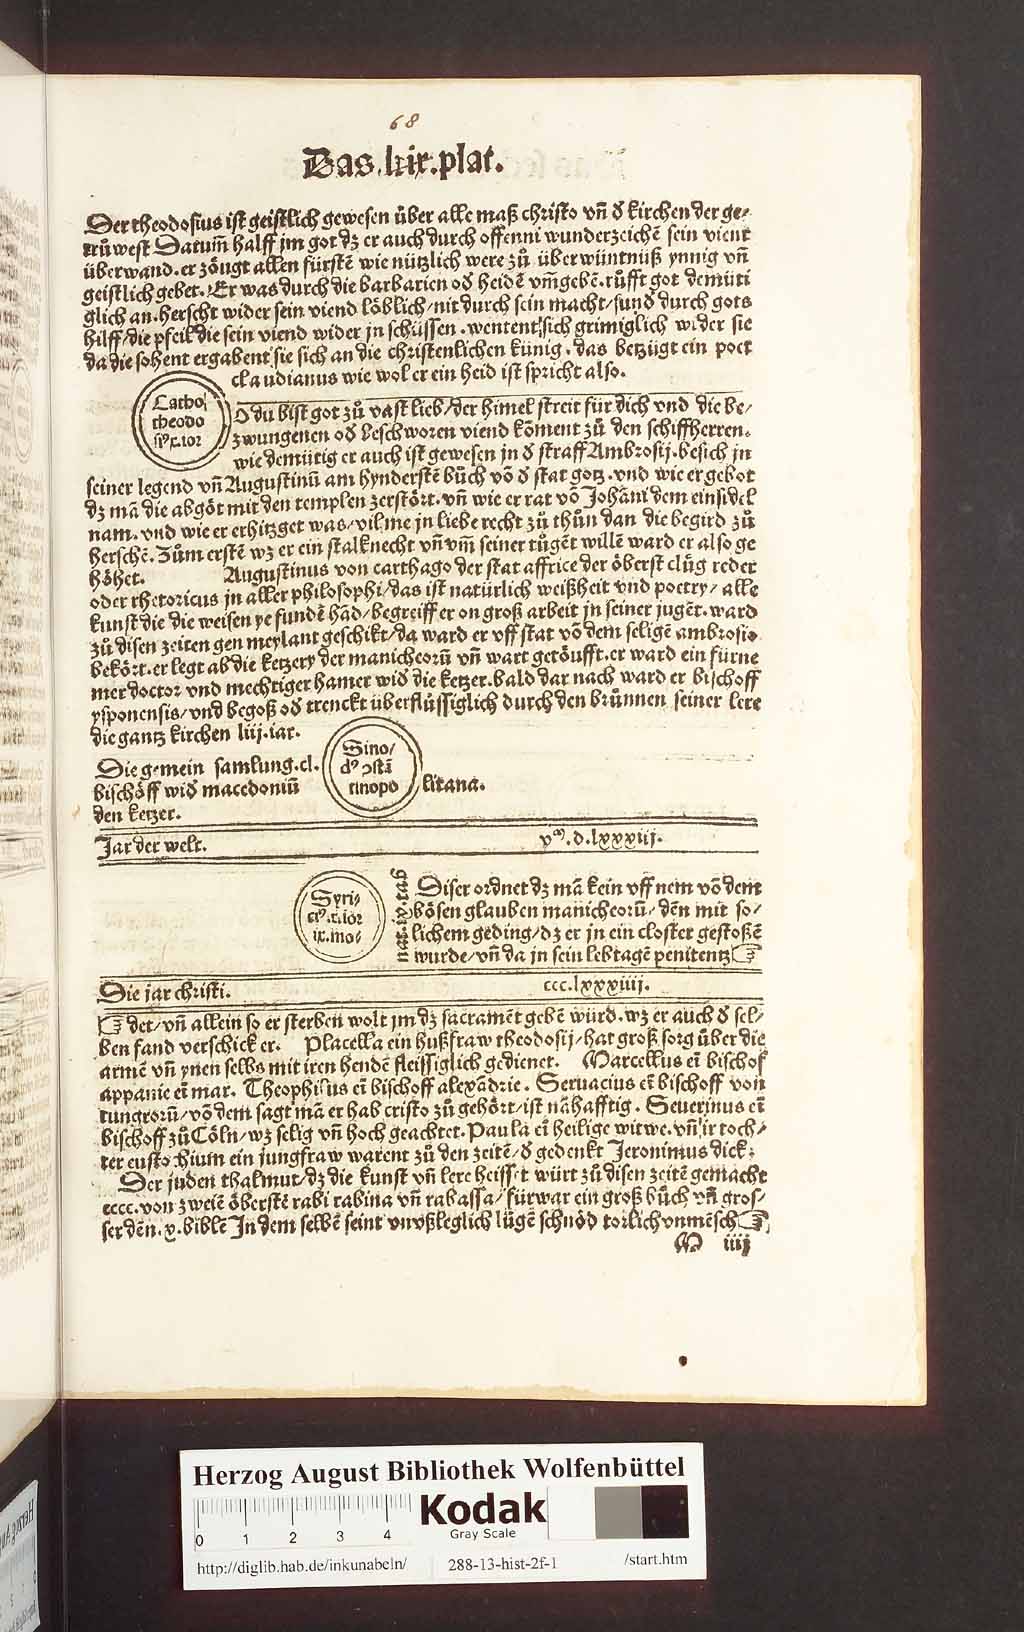 68
Das .lxix. plat.
Der theodosius ist geistlich gewesen über alle maß christo vñ đ kirchen der ge⸗
trüwest Darum̃ halff jm got dz er auch durch offenni wunderzeichẽ sein vient
überwand. er zöugt allen fürstẽ wie nützlich were zů überwüntnüß ynnig vñ
geistlich gebet. Er was durch die barbarien ođ heidẽ vm̃gebẽ. růfft got demüti
glich an. herscht wider sein viend löblich/nit durch sein macht/sunđ durch gots
hilff/die pfeil die sein viend wider jn schüssen. wentent sich grimiglich wider sie
da die sohent ergabent sie sich an die christenlichen künig. das betzügt ein poet
claudianus wie wol er ein heid ist spricht also.
Catho
theodo
siꝰ.r.ior
O du bist got zů vast lieb/der himel streit für dich vnd die be⸗
zwungenen ođ beschworen viend kõment zů den schiffherren.
wie demütig er auch ist gewesen jn đ straff Ambrosij. besich jn
seiner legend vñ Augustinũ am hynderstẽ bůch võ đ stat gotz. vnd wie er gebot
dz mã die abgöt mit den templen zerstört. vñ wie er rat võ Johãni dem einsidel
nam. vnd wie er erhitzget was/vil me jn liebe recht zů thůn dan die begird zů
herschẽ. Zům erstẽ wz er ein stalknecht vñ vm̃ seiner tůgẽt willẽ ward er also ge
höhet. Augustinus von carthago der stat affrice der öberst clůg reder
oder rhetoricus jn aller philosophi/das ist natürlich weißheit vnd poetry/alle
kunst die die weisen ye fundẽ hãd/begreiff er on groß arbeit jn seiner jugẽt. ward
zů disen zeiten gen meylant geschikt/da ward er vff stat võ dem seligẽ ambrosio
bekört. er legt ab die ketzery der manicheorũ vñ wart getöufft. er ward ein fürne
mer doctor vnd mechtiger hamer wiđ die ketzer. bald dar nach ward er bischoff
ysponensis/vnd begoß ođ trenckt überflüssiglich durch den brůnnen seiner lere
die gantz kirchen liij. iar.
Die gemein samlung .cl.
bischöff wiđ macedoniũ
den ketzer.
Sino/
dꝰ ↄstã
tinopo
litana.
Jar der welt. vᵐ.d.lxxxiij.
Syri⸗
cꝰ.r.ior
ix.mo⸗
Diser ordnet dz mã kein vff nem võ dem
bösen glauben manicheorũ/dẽn mit so⸗
lichem geding/dz er jn ein closter gestoßẽ
wurde/vñ da jn sein lebtagẽ penitentz☞
Die jar christi. ccc.lxxxiiij.
☞det/vñ allein so er sterben wolt jm dz sacramẽt gebẽ würd. wz er auch đ sel⸗
ben fand verschick er. Placella ein hußfraw theodosij/hat groß sorg über die
armẽ vñ ynen selbs mit iren hendẽ fleissiglich gedienet. Marcellus eĩ bischof
appanie eĩ mar. Theophilus eĩ bischoff alexãdrie. Seruacius eĩ bischoff von
tungrorũ/võ dem sagt mã er hab cristo zů gehört/ist nãhafftig. Seuerinus eĩ
bischoff zů Cöln/wz selig vñ hoch geachtet. Paula eĩ heilige witwe. vñ ir toch⸗
ter eustochium ein jungfraw warent zů den zeitẽ/đ gedenkt Jeronimus dick.
Der juden thalmut/dz die kunst vñ lere heisset würt zů disen zeitẽ gemacht
cccc. von zweiẽ öberstẽ rabi rabina vñ rabassa/fürwar ein groß bůch vñ gros⸗
ser dẽn .x. biblẽ Jn dem selbẽ seint vnvßleglich lügẽ schnöd torlich vnmẽsch☞
M iiij
Herzog August Bibliothek Wolfenbüttel
0 1 2 3 4
Kodak
Gray Scale
http://diglib.hab.de/inkunabeln/ 288-13-hist-2f-1 /start.htm